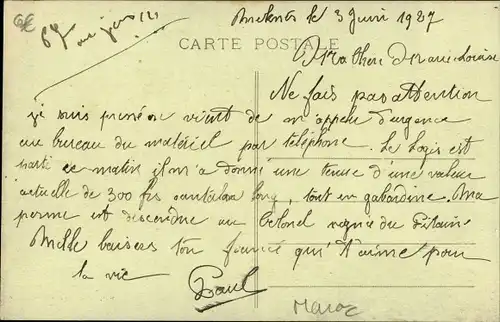 6€
Meknès le 3 Juin 1927
CARTE POSTALE
Ma chère Marie-Louise
Ne fais pas attention
je suis pressé on vient de m'appeler d'urgence
au bureau du matériel par téléphone. Le Logis est
parti ce matin il m'a donné une tenue d'une valeur
actuelle de 300 frs pantalon long, tout en gabardine. Ma
perme est descendue au Colonel signée du Pitaine
Mille baisers ton fiancé qui t'aime pour
la vie
Paul
Maroc